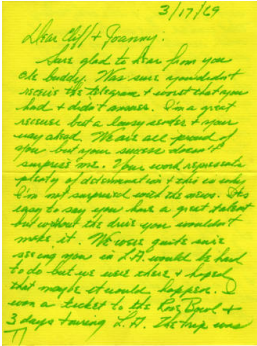 3/17/69
Dear Cliff & Joanny:
Sure glad to hear from you
ole buddy. Was sure you didn't
receive the telegram & worst that you
had & didn't answer. I'm a great
receiver but a lousy sender & your
way ahead. We are all proud of
you but your success doesn't
surprise me. Your work represents
plenty of determination & this is why
I'm not surprised with the news. It's
easy to say you have a great talent
but without the drive you wouldn't
make it. We were quite sure
seeing you in L.A. would be hard
to do but we were there & hoped
that maybe it would happen. I
won a ticket to the Rose Bowl &
3 days touring L.A. The trip was